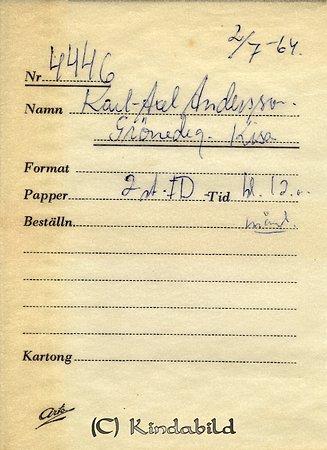 2/7-64.
Nr 4446
Namn Karl-Axel Andersson.
Grönedeg. Kisa
Format
Papper 2 st. FD Tid kl. 12.
Beställn.
Kartong
Arto
(C) Kindabild